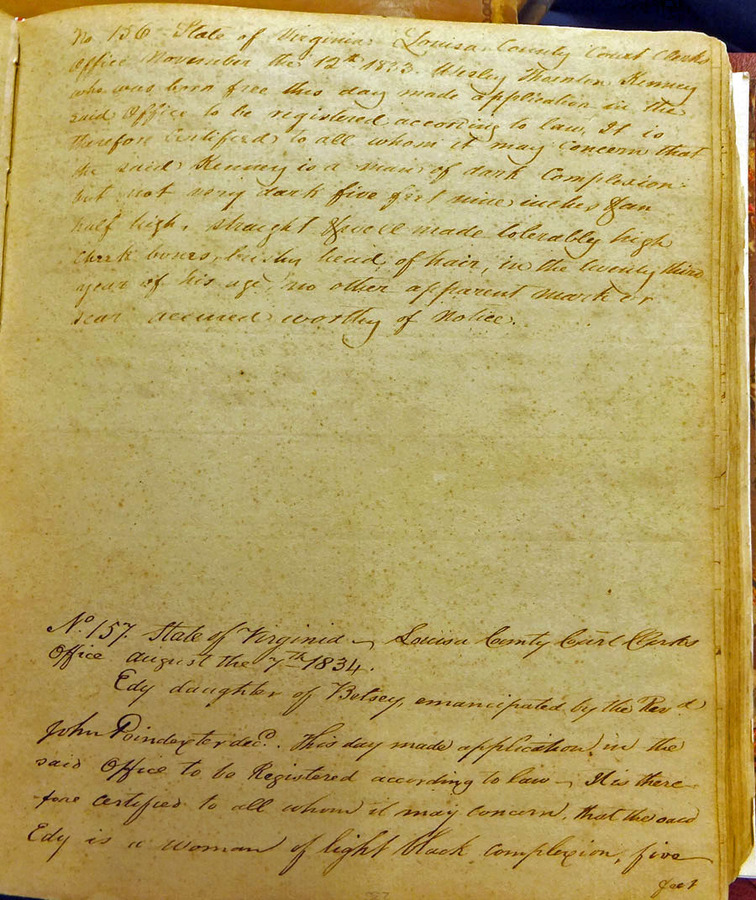 No 156 State of Virginia Louisa County Court Clerks
office November the 12th 1833. Wesley Thornton Kenney
who was born free this day made application in the
said Office to be registered according to law. It is
therefore Certified to all whom it may Concern that
the said Kenney is a man of dark Complexion
but not very dark five feet nine inches & an
half high, straight & well made tolerably high
Cheek bones, bushy head of hair, in the twenty third
year of his age, no other apparent mark or
scar worthy of Notice.
No. 157. State of Virginia Louisa County Court Clerks
Office august the 7th 1834.
Edy daughter of Betsey, emancipated by the Revd
John Poindexter decd. This day made application, in the
said Office to be Registered according to law It is there
fore Certified to all whom it may concern, that the said
Edy is a woman of light black complexion, five
feet